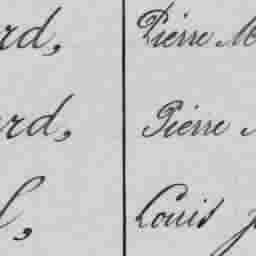 rd, Pierre M
rd, Pierre
l, Louis J